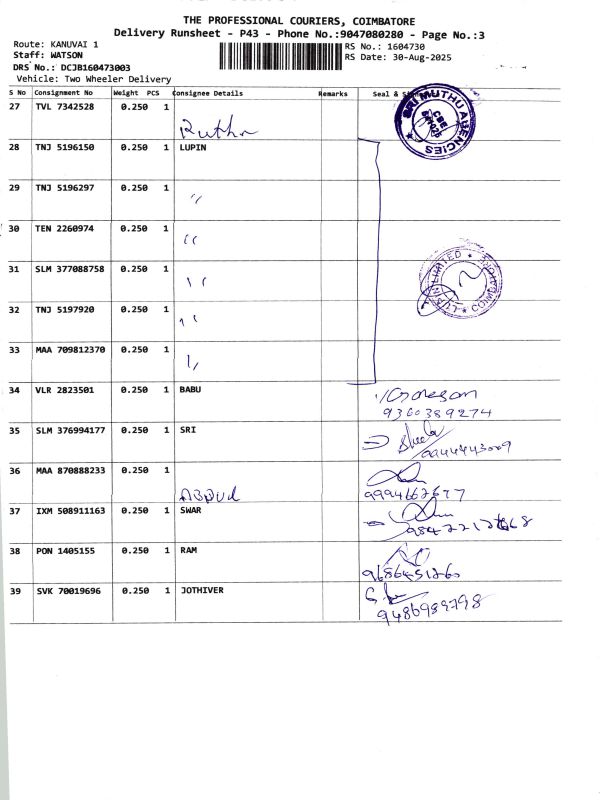 THE PROFESSIONAL COURIERS, COIMBATORE
Delivery Runsheet - P43 - Phone No.:9047080280 - Page No.:3
Route: KANUVAI 1
RS No.: 1604730
Staff: WATSON
RS Date: 30-Aug-2025
DRS No.: DCJB160473003
Vehicle: Two Wheeler Delivery
S No Consignment No Weight PCS Consignee Details Remarks Seal &
27 TVL 7342528 0.250 1
SRI MUTHU AGENCIES
CBE
28 TNJ 5196150 0.250 1 LUPIN
29 TNJ 5196297 0.250 1 ,,
30 TEN 2260974 0.250 1 ,,
31 SLM 377088758 0.250 1 ,,
LUPIN LIMITED COIMBATORE
32 TNJ 5197920 0.250 1 ,,
33 MAA 709812370 0.250 1 ,,
34 VLR 2823501 0.250 1 BABU
9360389274
35 SLM 376994177 0.250 1 SRI Sheela
36 MAA 870888233 0.250 1
9994662677
37 IXM 508911163 0.250 1 SWAR
38 PON 1405155 0.250 1 RAM
39 SVK 70019696 0.250 1 JOTHIVER